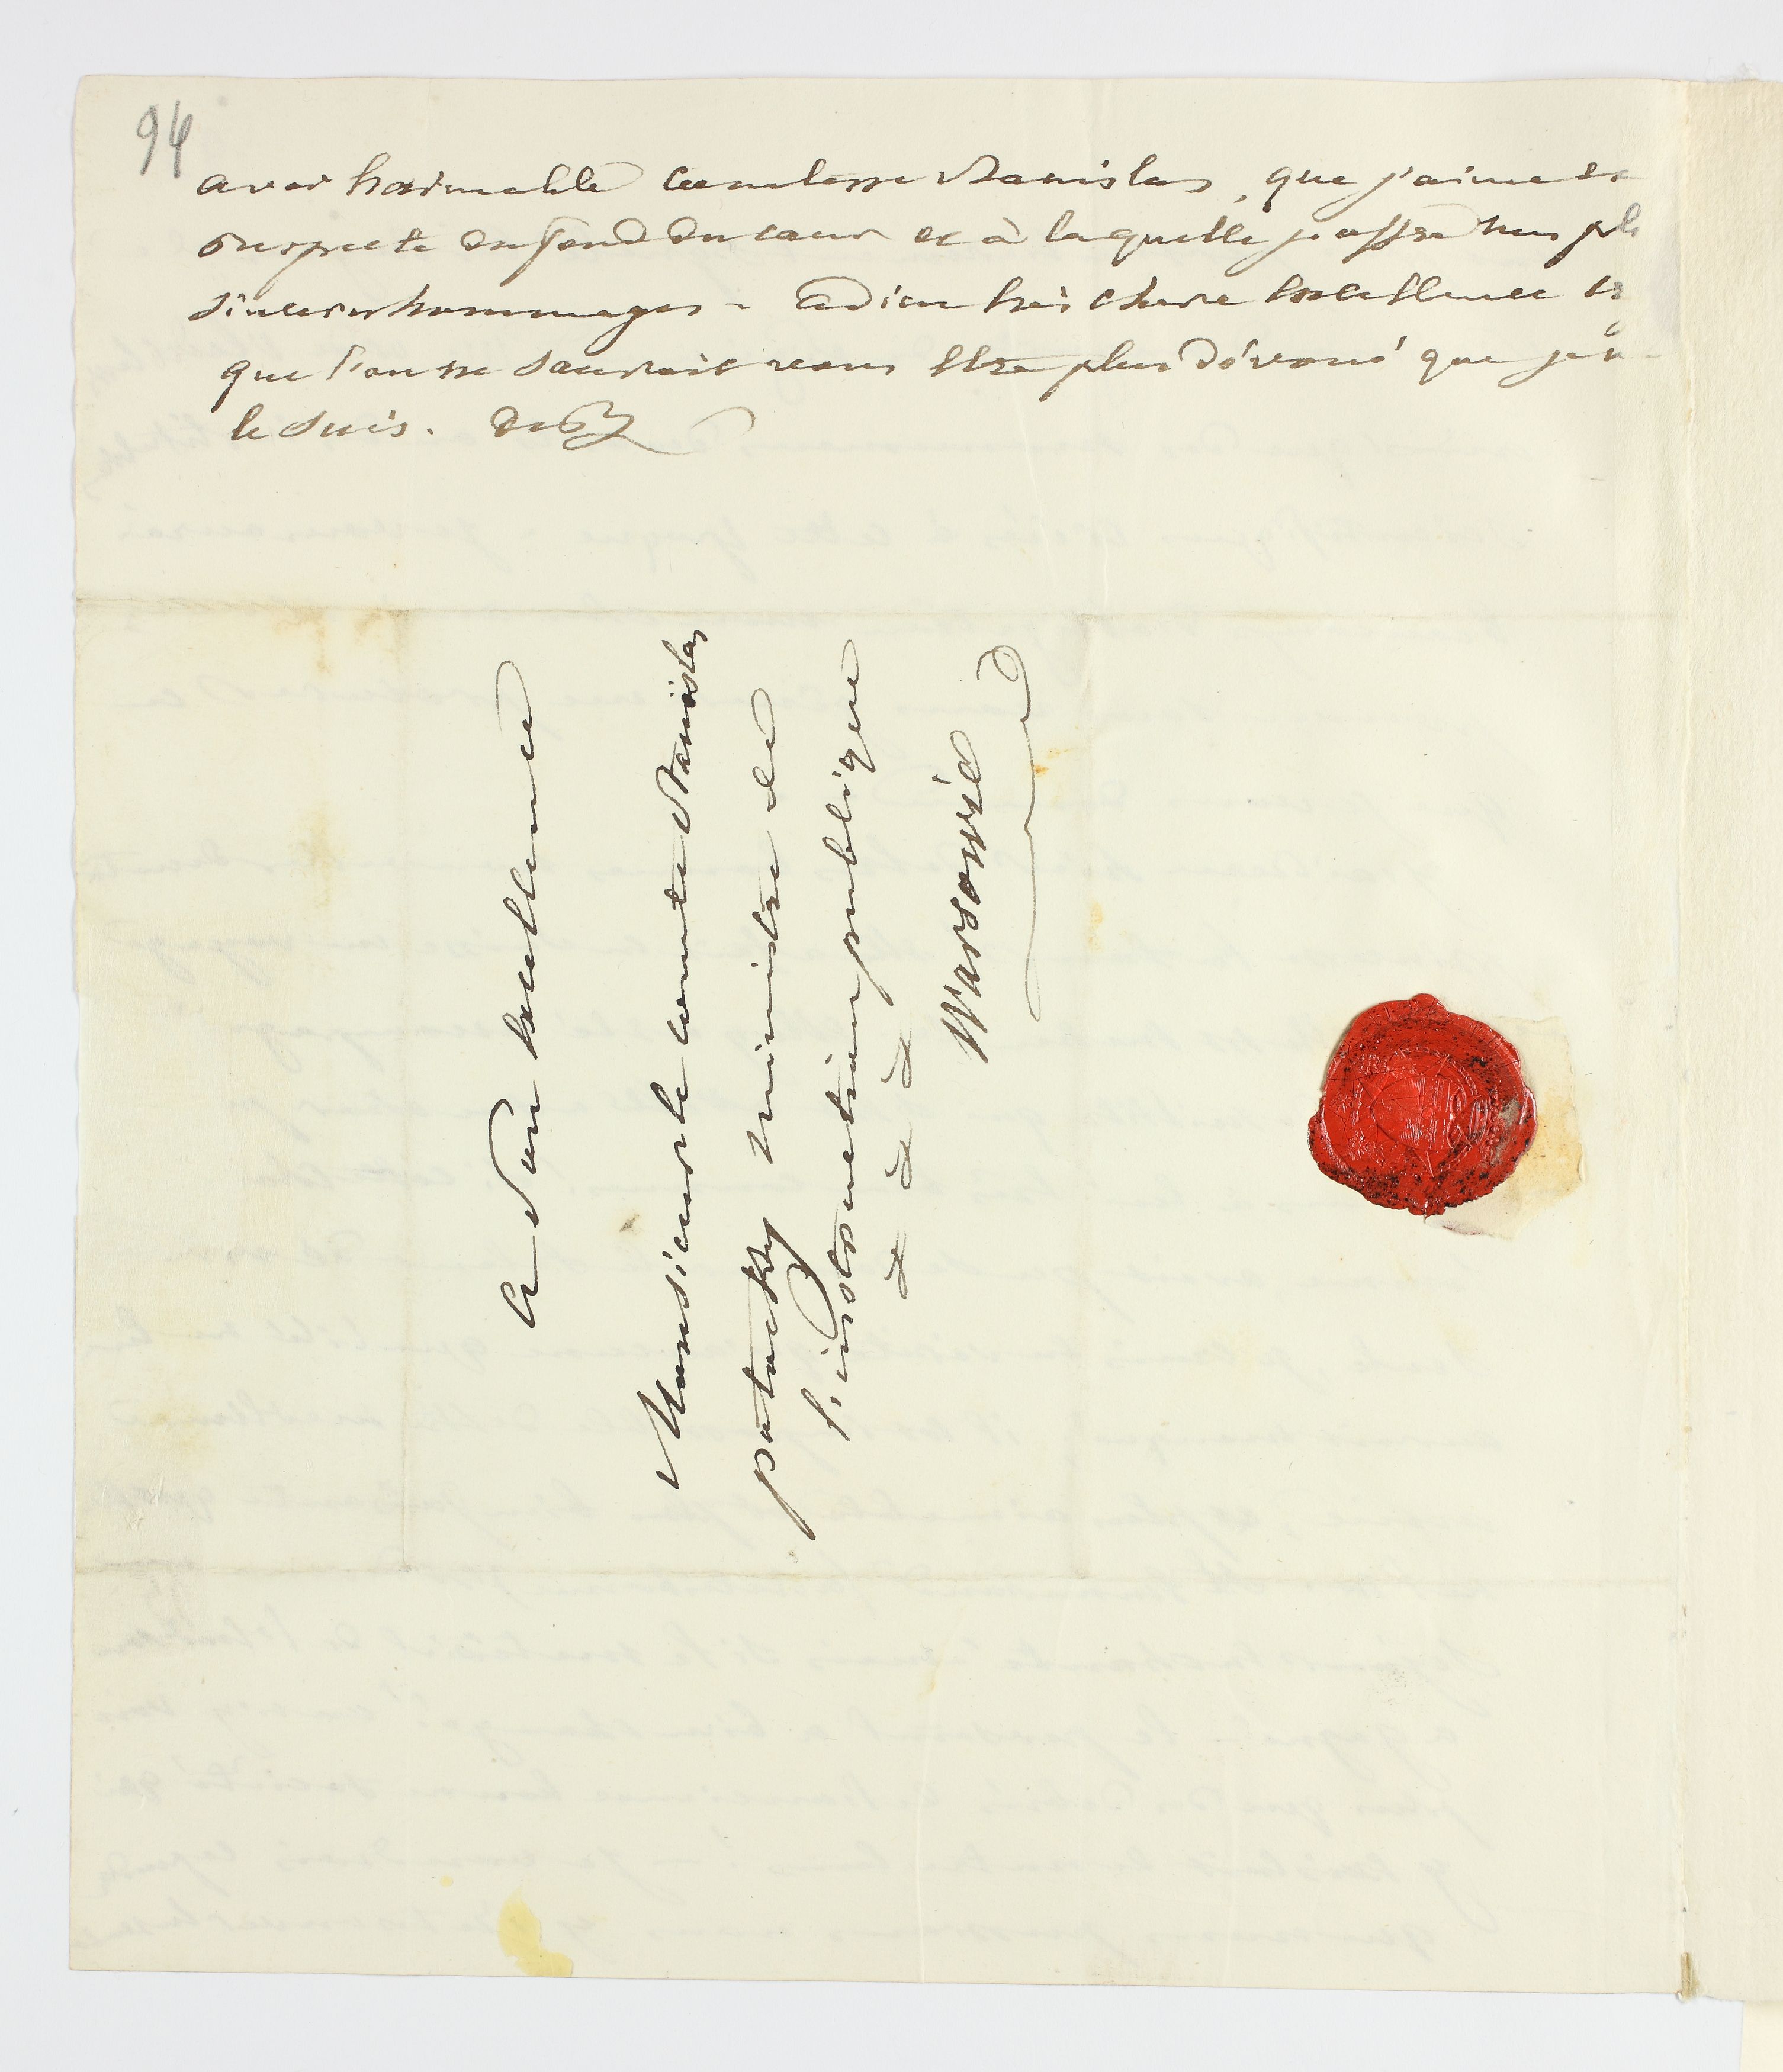 94
avec l'aimable Comtesse Stanislas, que j'aime et
respecte du fond du cœur et à laquelle j'offre mes plus
sinceres hommages - adieu très chere Excellence
que l'on ne sauroit vous être plus dévoué que je
le suis.
à Son Excellence
Monsieur le comte Stanislas
potocky ministre de
l'instruction publique
à à à
Warsovie